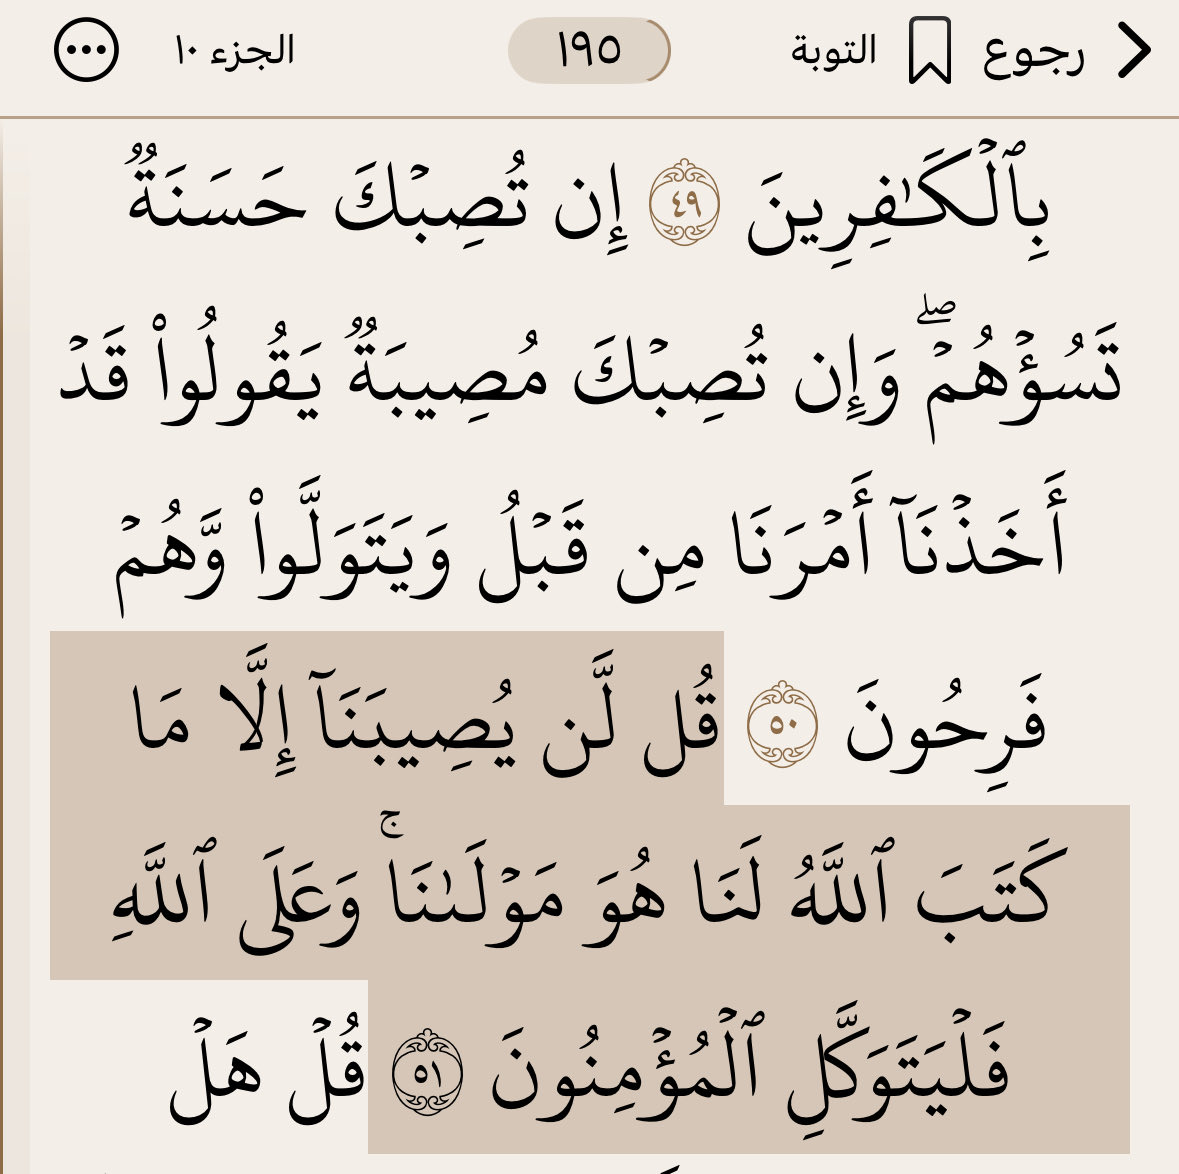 رجوع التوبة ١٩٥ الجزء ١٠
بِٱلۡكَٰفِرِينَ ٤٩ إِن تُصِبۡكَ حَسَنَةٞ
تَسُؤۡهُمۡۖ وَإِن تُصِبۡكَ مُصِيبَةٞ يَقُولُواْ قَدۡ
أَخَذۡنَآ أَمۡرَنَا مِن قَبۡلُ وَيَتَوَلَّواْ وَّهُمۡ
فَرِحُونَ ٥٠ قُل لَّن يُصِيبَنَآ إِلَّا مَا
كَتَبَ ٱللَّهُ لَنَا هُوَ مَوۡلَىٰنَاۚ وَعَلَى ٱللَّهِ
فَلۡيَتَوَكَّلِ ٱلۡمُؤۡمِنُونَ ٥١ قُلۡ هَلۡ